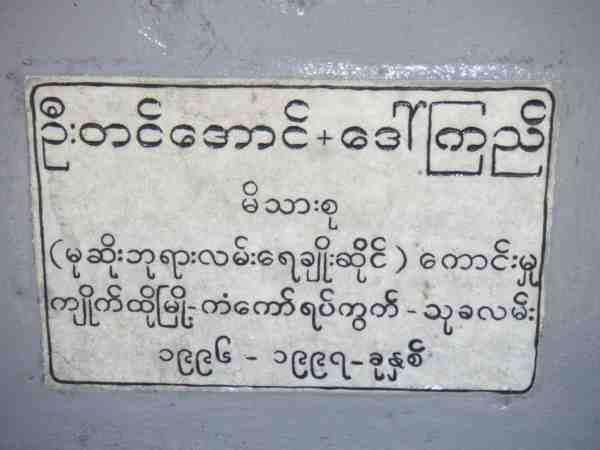 ဦးတင်အောင် + ဒေါ်ကြည်
မိသားစု
(မုဆိုးဘုရားလမ်းရေချိုးဆိုင်) ကောင်းမှု
ကျိုက်ထိုမြို့-ကံကော်ရပ်ကွက်-သုခလမ်း
၁၉၉၆ - ၁၉၉၇-ခုနှစ်